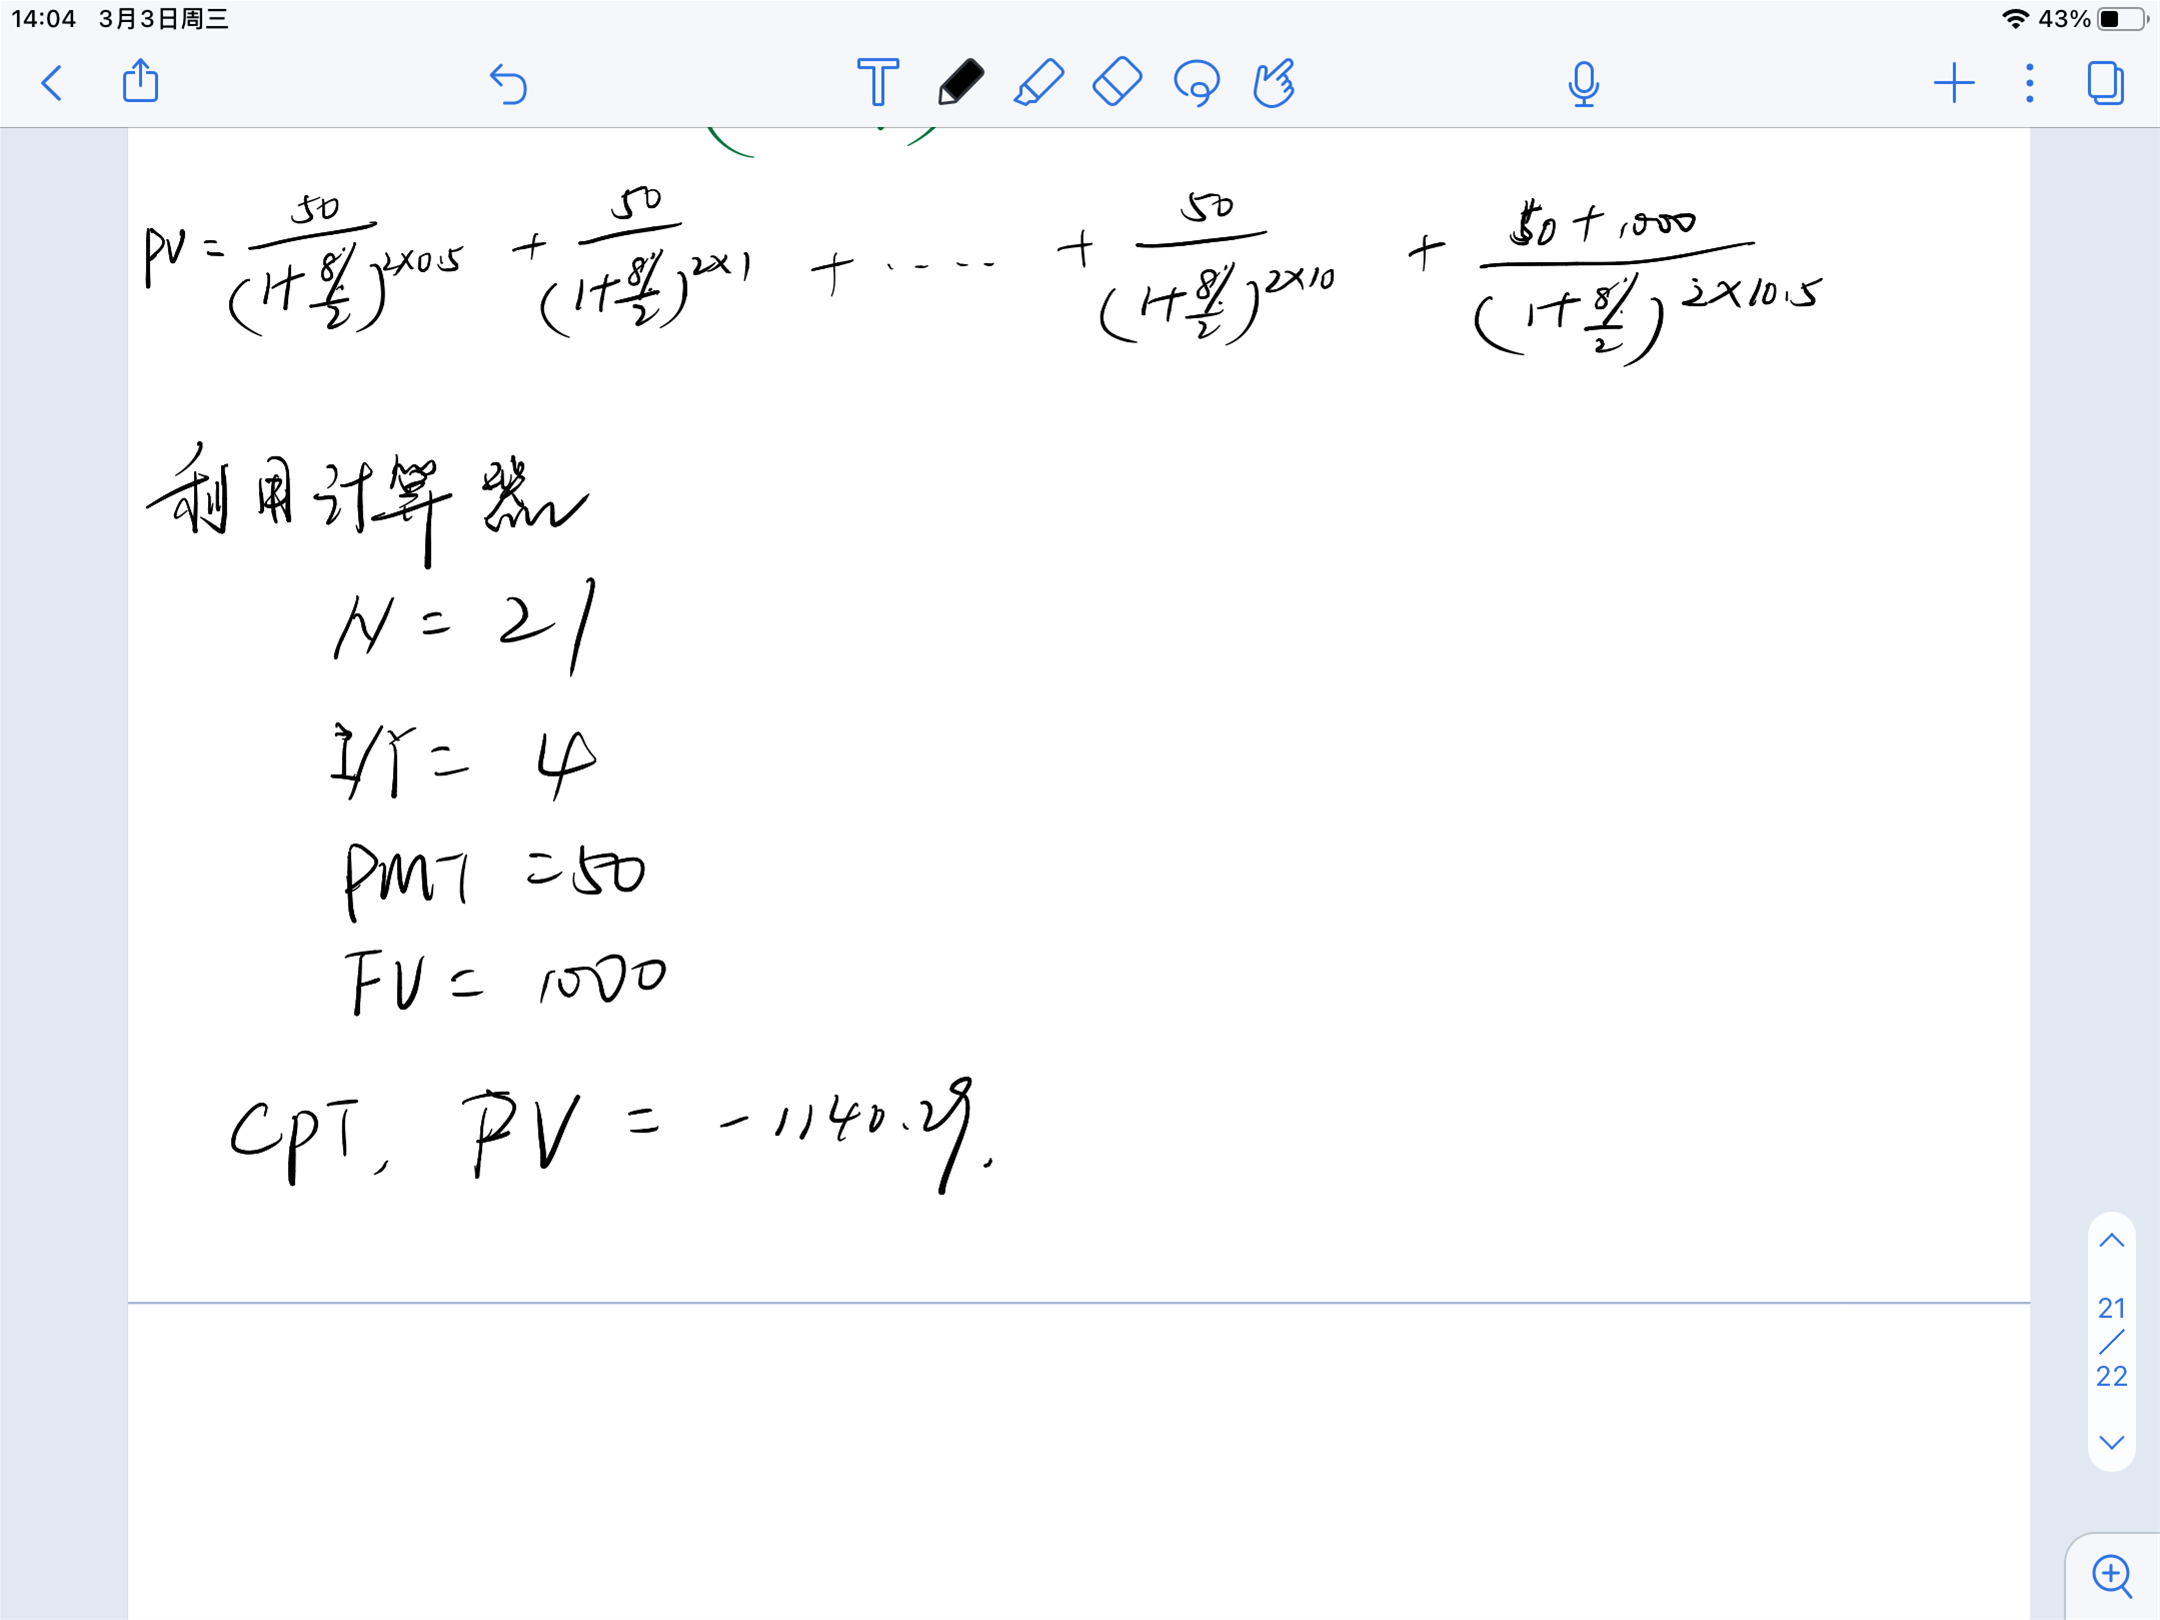 14:04 3月3日周三 43%
T
PV = 50/(1+8%/2)^2×0.5 + 50/(1+8%/2)^2×1 + ..... + 50/(1+8%/2)^2×10 + 50+1000/(1+8%/2)^2×10.5
利用计算器
N = 21
I/Y = 4
PMT = 50
FV = 1000
CPT, PV = -1140.29.
21
/
22